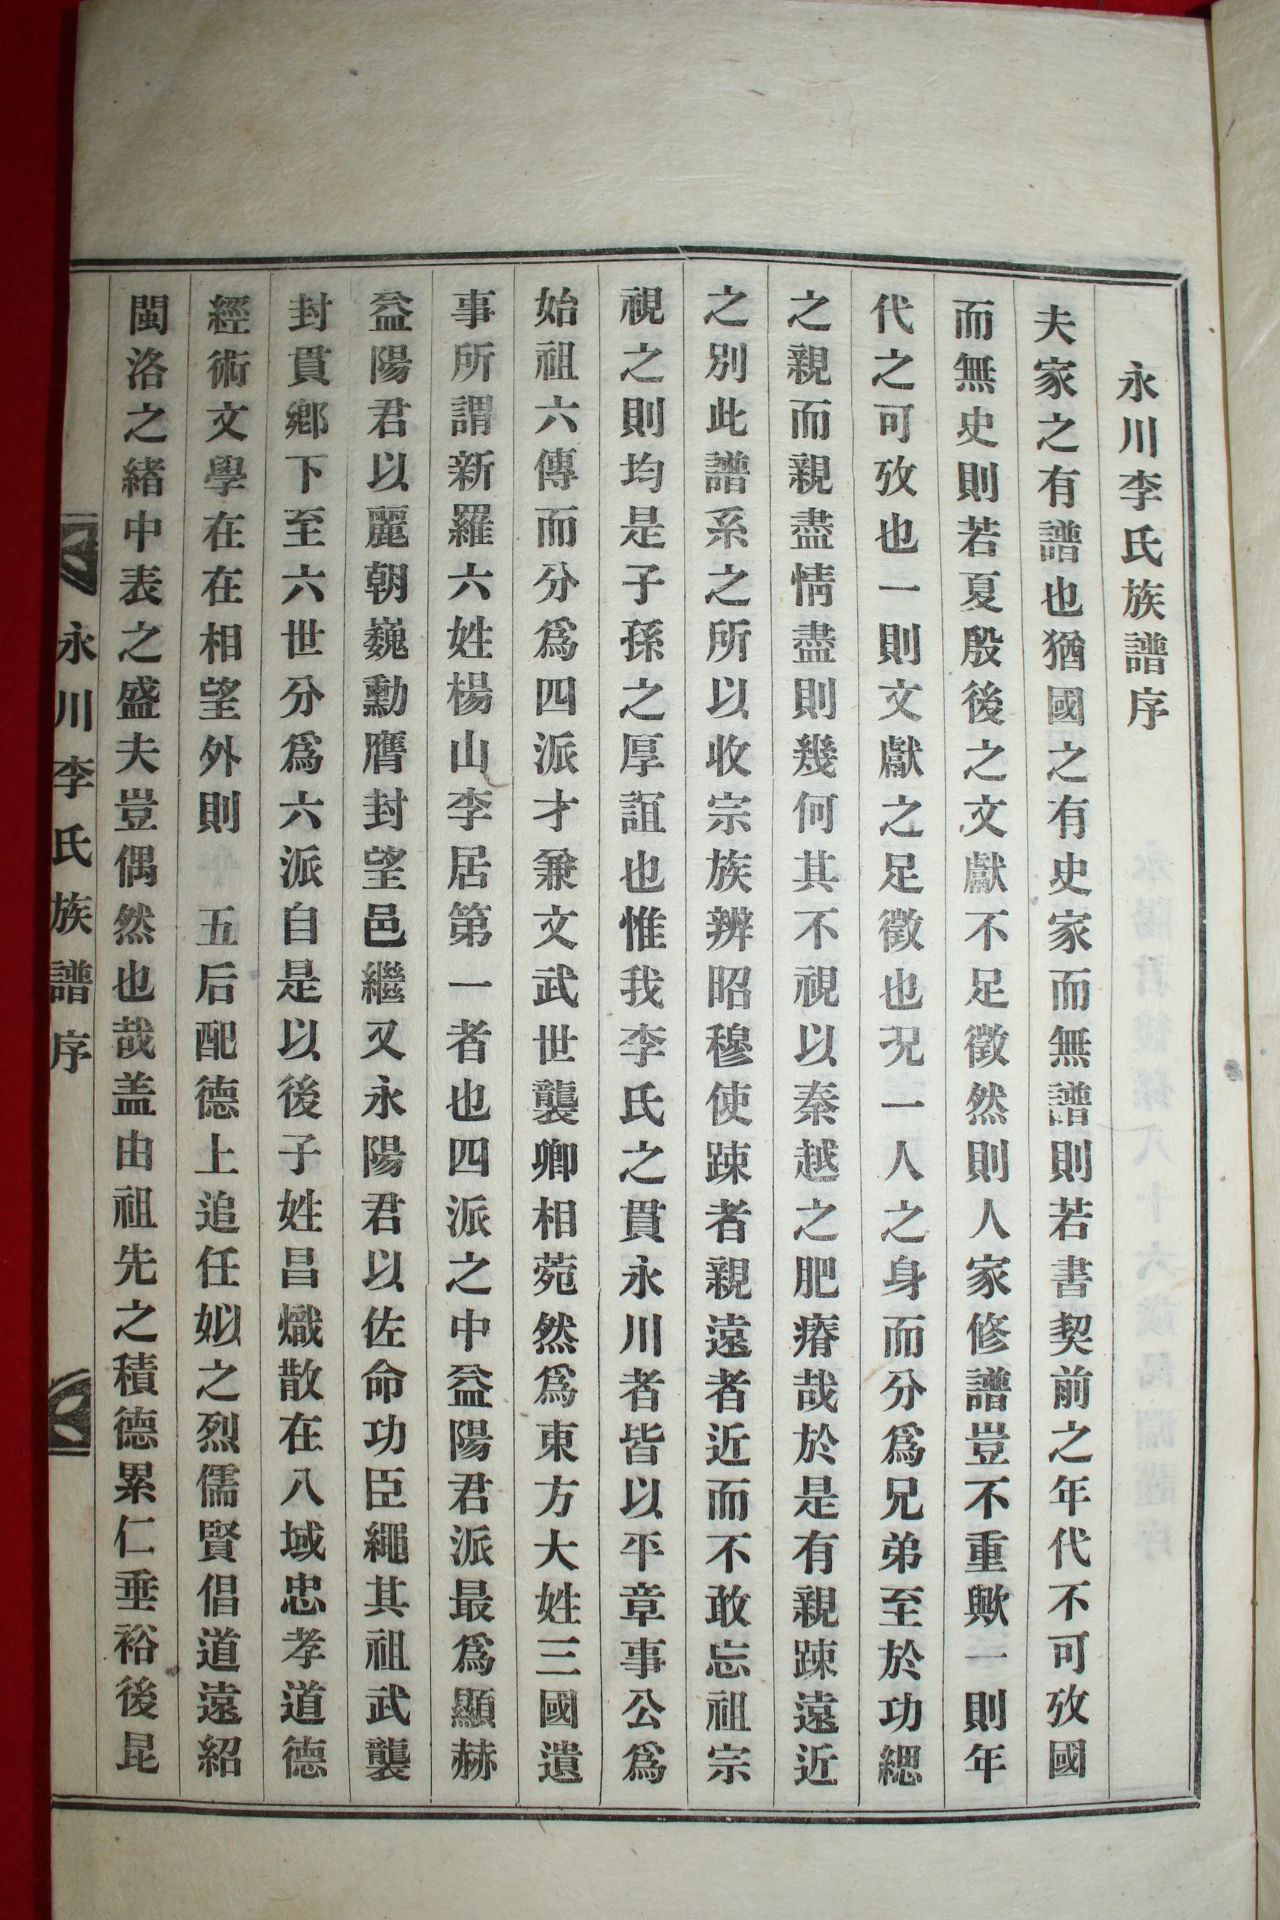 永川李氏族譜序
夫家之有譜也猶國之有史家而無譜則若書契前之年代不可攷國
而無史則若夏殷後之文獻不足徵然則人家修譜豈不重歟一則年
代之可攷也一則文獻之足徵也況一人之身而分爲兄弟至於功緦
之親而親盡情盡則幾何其不視以秦越之肥瘠哉於是有親踈遠近
之別此譜系之所以收宗族辨昭穆使踈者親遠者近而不敢忘祖宗
視之則均是子孫之厚誼也惟我李氏之貫永川者皆以平章事公爲
始祖六傳而分爲四派才兼文武世襲卿相菀然爲東方大姓三國遺
事所謂新羅六姓楊山李居第一者也四派之中益陽君派最爲顯赫
益陽君以麗朝巍勳膺封望邑繼又永陽君以佐命功臣繩其祖武襲
封貫鄕下至六世分爲六派自是以後子姓昌熾散在八域忠孝道德
經術文學在在相望外則　五后配德上追任姒之烈儒賢倡道遠紹
閩洛之緖中表之盛夫豈偶然也哉盖由祖先之積德累仁垂裕後昆
永川李氏族譜序